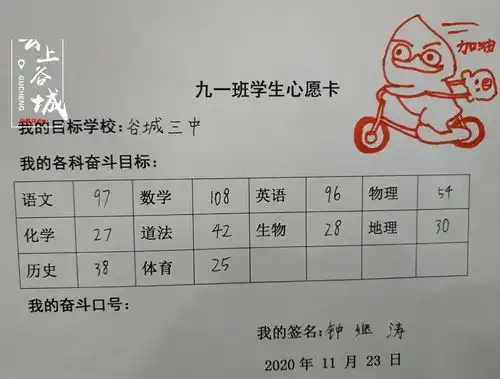 云上谷城
GUCHENG
加油
九一班学生心愿卡
我的目标学校:谷城三中
我的各科奋斗目标:
语文 97 数学 108 英语 96 物理 54
化学 27 道法 42 生物 28 地理 30
历史 38 体育 25
我的奋斗口号:
我的签名:钟继涛
2020 年 11 月 23 日